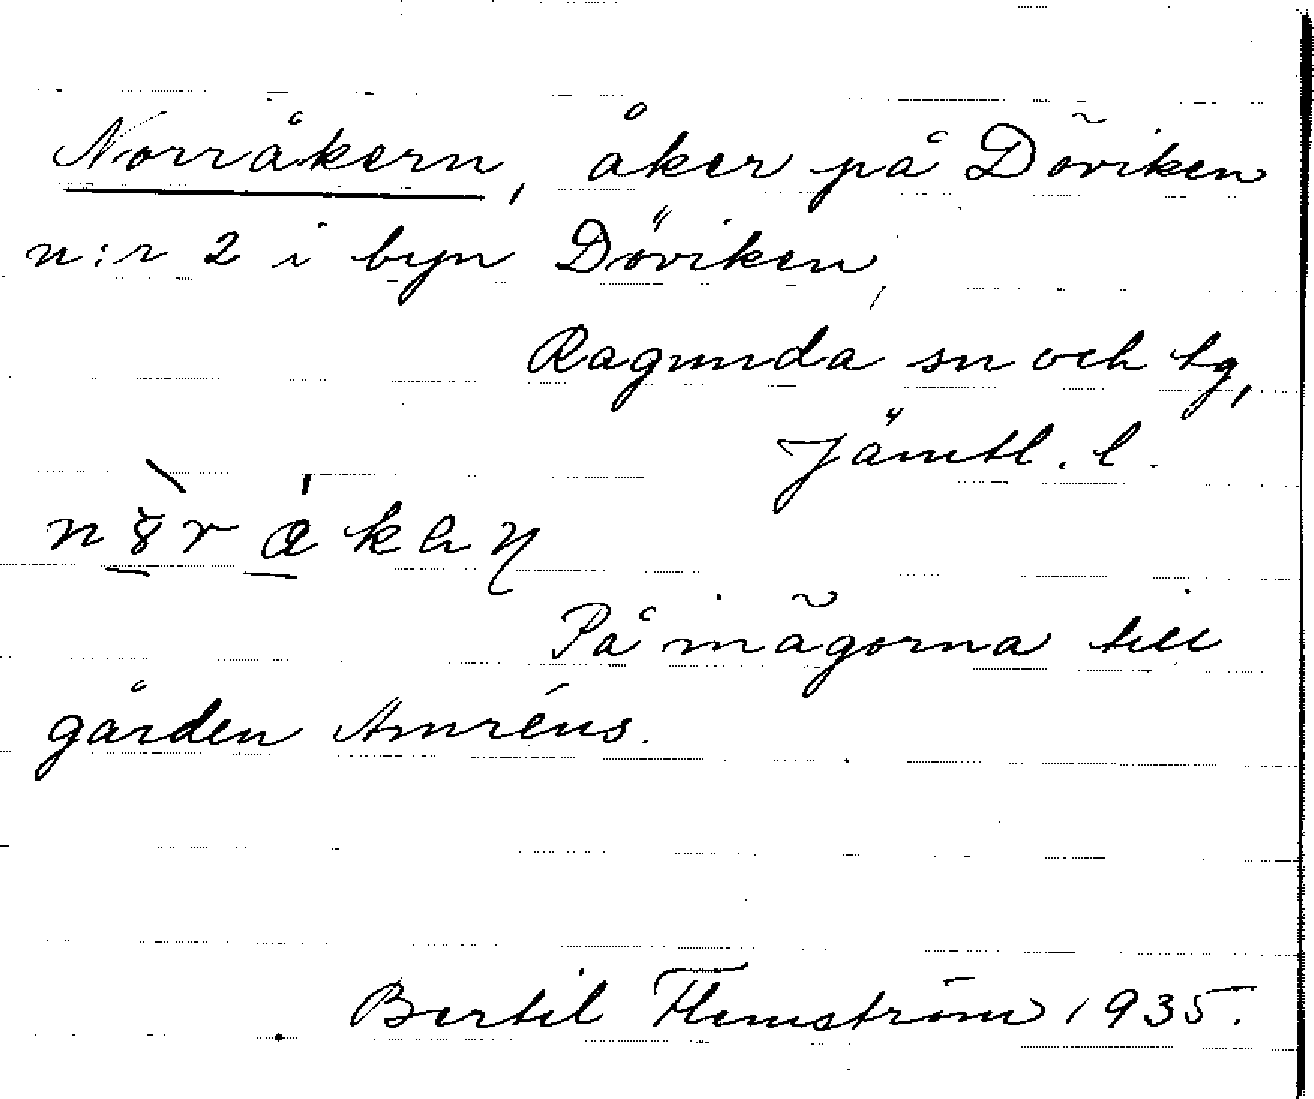 Norråkern, åker på Döviken
n:r 2 i byn Döviken,
Ragunda sn och tg,
Jämtl. l.
På mågorna till
gården Amréns.
Bertil Flemström 1935.